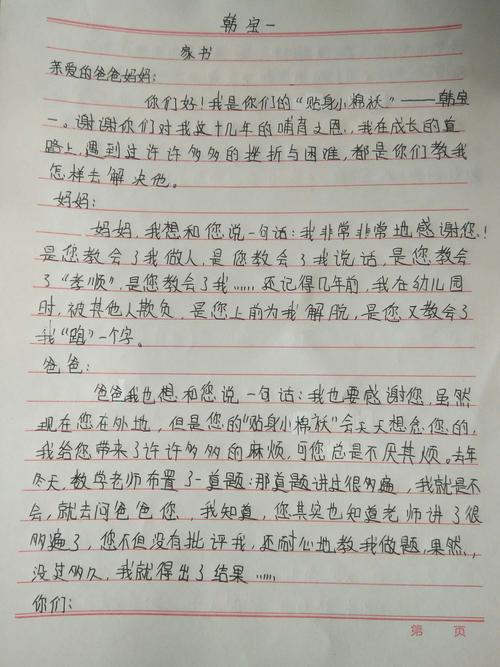 韩宝一
家书
亲爱的爸爸妈妈:
你们好!我是你们的“贴身小棉袄”——韩宝
一。谢谢你们对我这十几年的哺育之恩,我在成长的道
路上,遇到过许许多多的挫折与困难,都是你们教我
怎样去解决他。
妈妈:
妈妈,我想和您说一句话:我非常非常地感谢您!
是您教会了我做人,是您教会了我说话,是您教会
了“孝顺”,是您教会了我……还记得几年前,我在幼儿园
时,被其他人欺负,是您上前为我解脱,是您又教会了
我“跑”一个字。
爸爸:
爸爸,我也想和您说一句话:我也要感谢您,虽然
现在您在外地,但是您的“贴身小棉袄”会天天想念您的,
我给您带来了许许多多的麻烦,可您总是不厌其烦。去年
冬天,数学老师布置了一道题:那道题讲过很多遍,我就是不
会,就去问爸爸您,我知道,您其实也知道老师讲了很
多遍了,您不但没有批评我,还耐心地教我做题,果然,
没过多久,我就得出了结果……
你们:
第 页